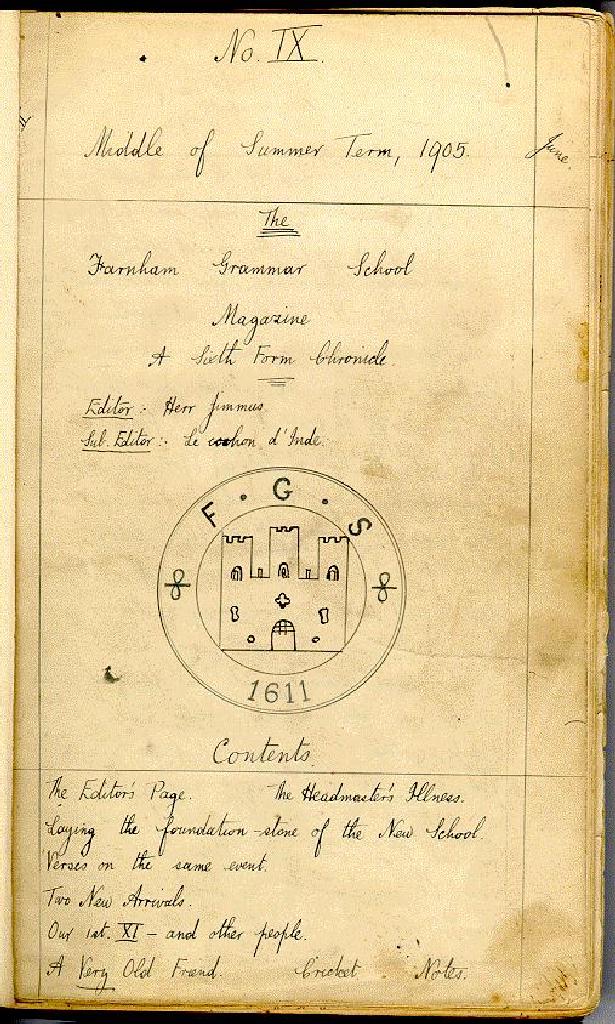 No. IX.
Middle of Summer Term, 1905. June.
The
Farnham Grammar School
Magazine
A Sixth Form Chronicle.
Editor:- Herr Jimmus
Sub. Editor:- Le cochon d'Inde.
F . G . S
1611
Contents.
The Editor's Page. The Headmaster's Illness.
Laying the foundation-stone of the New School.
Verses on the same event.
Two New Arrivals.
Our 1st. XI - and other people.
A Very Old Friend. Cricket Notes.